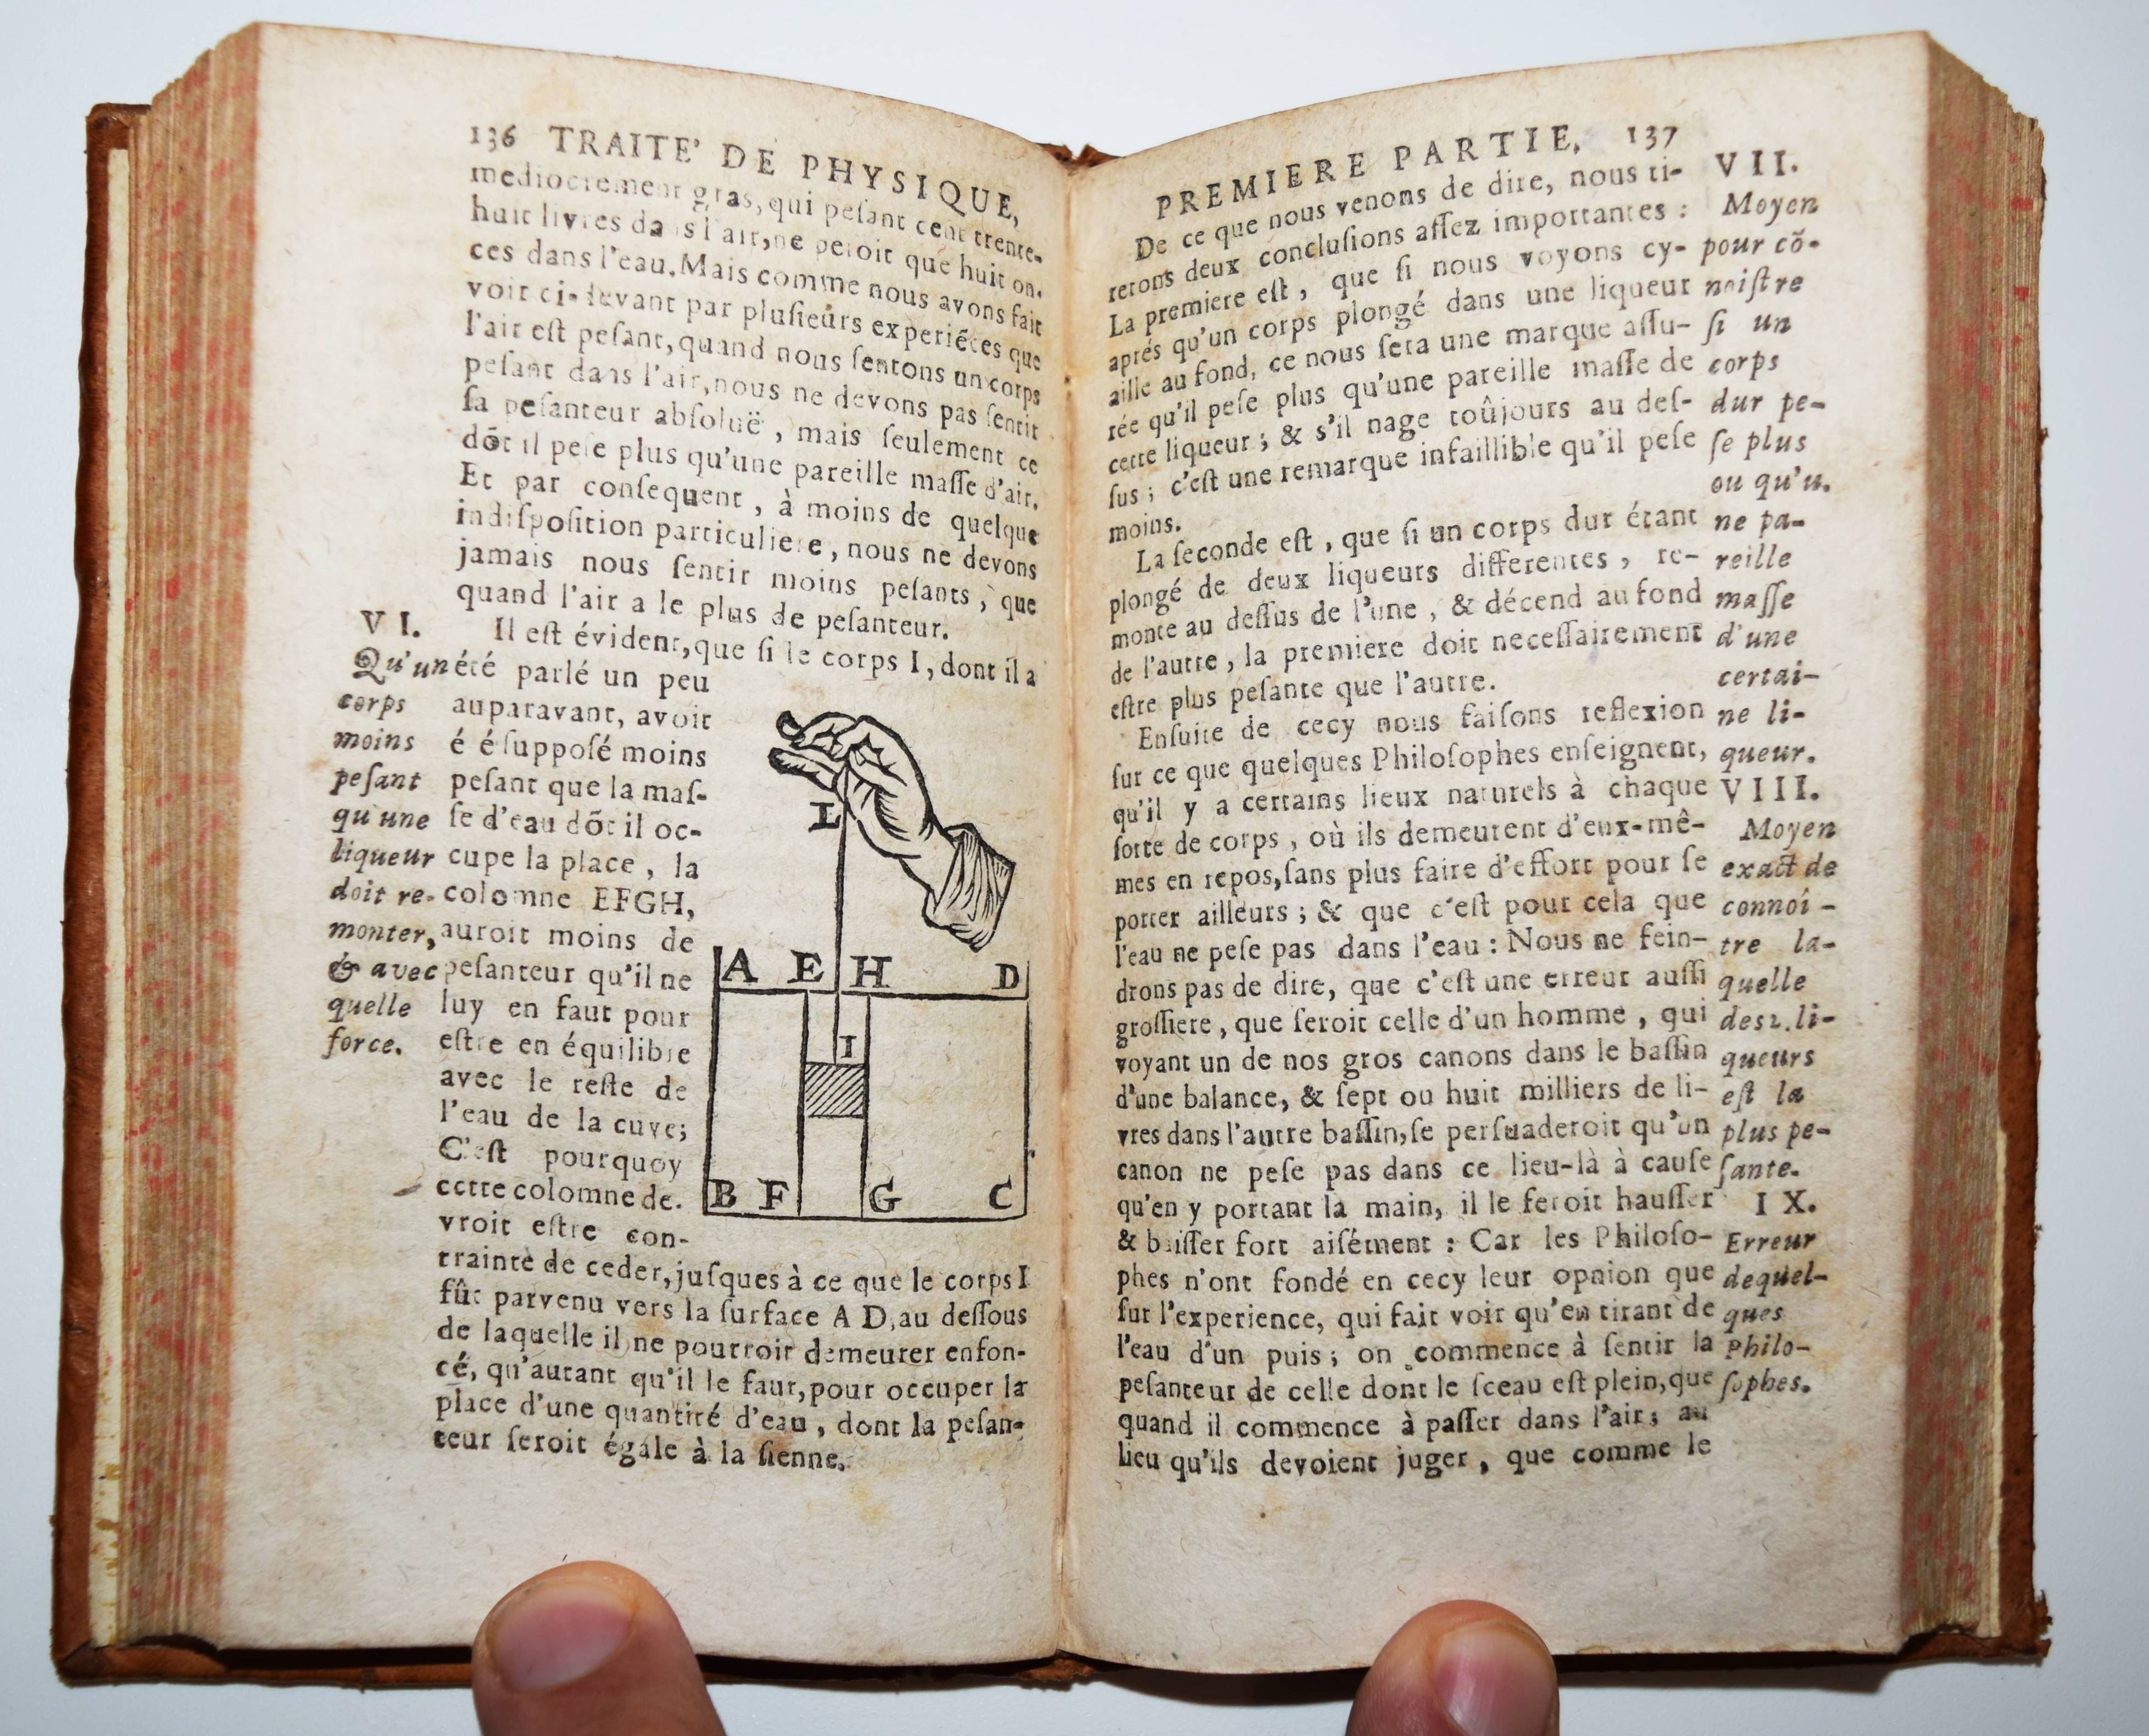 136 TRAITE' DE PHYSIQUE,
mediocrement gras, qui peſant cent trente-
huit livres dans l'air, ne peſoit que huit on-
ces dans l'eau. Mais comme nous avons fait
voir ci-devant par pluſieurs experiẽces que
l'air eſt peſant, quand nous ſentons un corps
peſant dans l'air, nous ne devons pas ſentir
ſa peſanteur abſoluë, mais ſeulement ce
dõt il peſe plus qu'une pareille maſſe d'air.
Et par conſequent, à moins de quelque
indiſpoſition particuliere, nous ne devons
jamais nous ſentir moins peſants, que
quand l'air a le plus de peſanteur.
VI.
Qu'un
corps
moins
peſant
qu'une
liqueur
doit re-
monter,
& avec
quelle
force.
Il eſt évident, que ſi le corps I, dont il a
été parlé un peu
auparavant, avoit
é é ſuppoſé moins
peſant que la maſ-
ſe d'eau dõt il oc-
cupe la place, la
colomne EFGH,
auroit moins de
peſanteur qu'il ne
luy en faut pour
eſtre en équilibre
avec le reſte de
l'eau de la cuve;
C'eſt pourquoy
cette colomne de-
vroit eſtre con-
trainte de ceder, juſques à ce que le corps I
fût parvenu vers la ſurface A D, au deſſous
de laquelle il ne pourroit demeurer enfon-
cé, qu'autant qu'il le faut, pour occuper la
place d'une quantité d'eau, dont la peſan-
teur ſeroit égale à la ſienne.
L
A E H D
I
B F G C
PREMIERE PARTIE. 137
De ce que nous venons de dire, nous ti-
rerons deux concluſions aſſez importantes :
La premiere eſt, que ſi nous voyons cy-
aprés qu'un corps plongé dans une liqueur
aille au fond, ce nous ſera une marque aſſu-
rée qu'il peſe plus qu'une pareille maſſe de
cette liqueur ; & s'il nage toûjours au deſ-
ſus ; c'eſt une remarque infaillible qu'il peſe
moins.
La ſeconde eſt, que ſi un corps dur étant
plongé de deux liqueurs differentes, re-
monte au deſſus de l'une, & décend au fond
de l'autre, la premiere doit neceſſairement
eſtre plus peſante que l'autre.
Enſuite de cecy nous faiſons reflexion
ſur ce que quelques Philoſophes enſeignent,
qu'il y a certains lieux naturels à chaque
ſorte de corps, où ils demeurent d'eux-mê-
mes en repos, ſans plus faire d'effort pour ſe
porter ailleurs ; & que c'eſt pour cela que
l'eau ne peſe pas dans l'eau : Nous ne fein-
drons pas de dire, que c'eſt une erreur auſſi
groſſiere, que ſeroit celle d'un homme, qui
voyant un de nos gros canons dans le baſſin
d'une balance, & ſept ou huit milliers de li-
vres dans l'autre baſſin, ſe perſuaderoit qu'un
canon ne peſe pas dans ce lieu-là à cauſe
qu'en y portant la main, il le feroit hauſſer
& baiſſer fort aiſément : Car les Philoſo-
phes n'ont fondé en cecy leur opnion que
ſur l'experience, qui fait voir qu'en tirant de
l'eau d'un puis ; on commence à ſentir la
peſanteur de celle dont le ſceau eſt plein, que
quand il commence à paſſer dans l'air ; au
lieu qu'ils devoient juger, que comme le
VII.
Moyen
pour cõ-
noiſtre
ſi un
corps
dur pe-
ſe plus
ou qu'u-
ne pa-
reille
maſſe
d'une
certai-
ne li-
queur.
VIII.
Moyen
exact de
connoî-
tre la-
quelle
des 2. li-
queurs
eſt la
plus pe-
ſante.
IX.
Erreur
de quel-
ques
Philo-
ſophes.